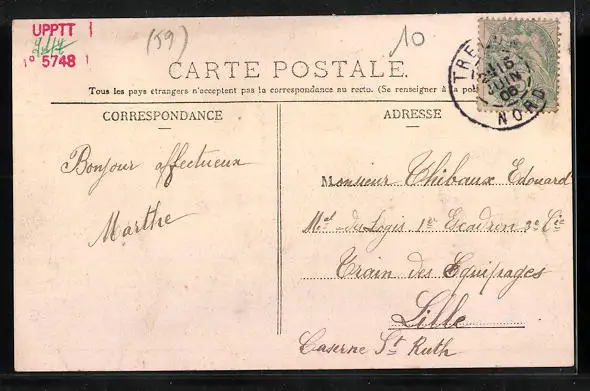 UPPTT
n° 5748
(59)
10
CARTE POSTALE
Tous les pays étrangers n'acceptent pas la correspondance au recto. (Se renseigner à la
CORRESPONDANCE
ADRESSE
Bonjour affectueux
Marthe
Monsieur Thibaux Edouard
Mal-des-Logis 1er Escadron 3e Cie
Train des Equipages
Lille
Caserne St Ruth
15
JUIN
06
NORD